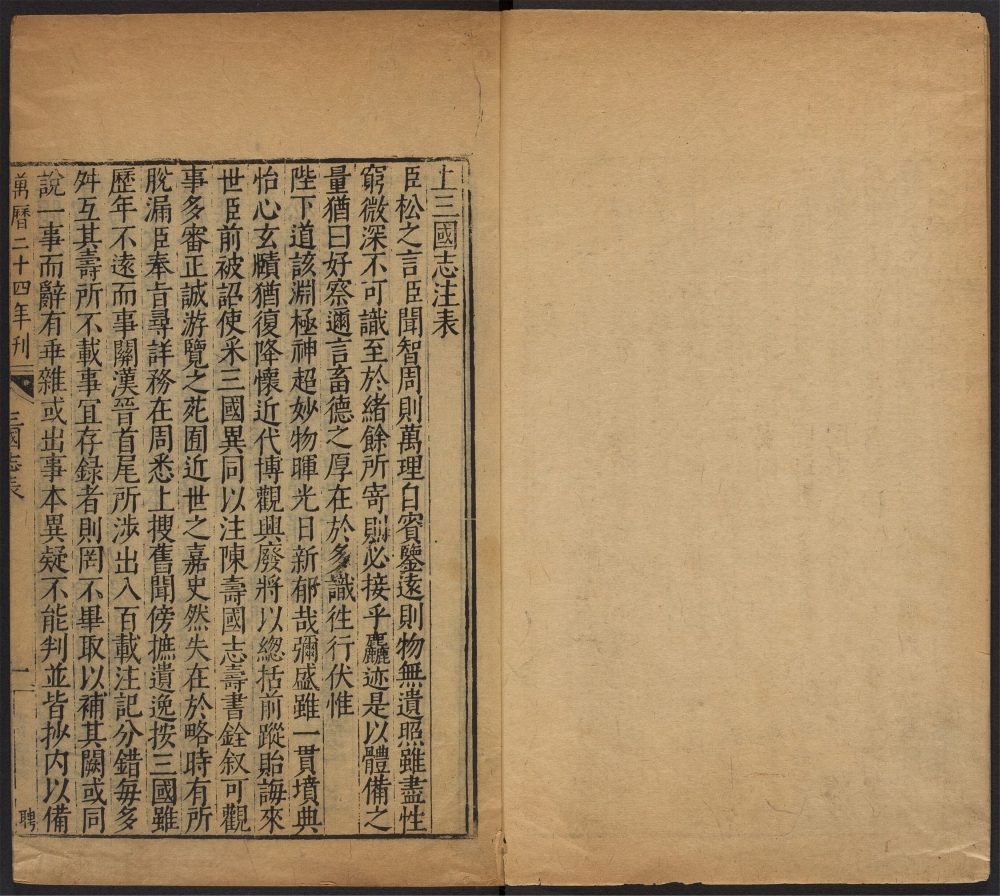 上三國志注表
臣松之言臣聞智周則萬理自賓鑒遠則物無遺照雖盡性
窮微深不可識至於緒餘所寄則必接乎麤迹是以體備之
量猶曰好察邇言畜德之厚在於多識徃行伏惟
陛下道該淵極神超妙物暉光日新郁哉彌盛雖一貫墳典
怡心玄賾猶復降懷近代博觀興廢將以緫括前蹤貽誨來
世臣前被詔使采三國異同以注陳壽國志壽書銓叙可觀
事多審正誠游覽之苑囿近世之嘉史然失在於略時有所
脫漏臣奉旨尋詳務在周悉上搜舊聞傍摭遺逸按三國雖
歷年不遠而事關漢晉首尾所涉出入百載注記分錯每多
舛互其壽所不載事宜存録者則罔不畢取以補其闕或同
說一事而辭有乖雜或出事本異疑不能判並皆抄内以備
萬曆二十四年刊
三國志表
一
聘